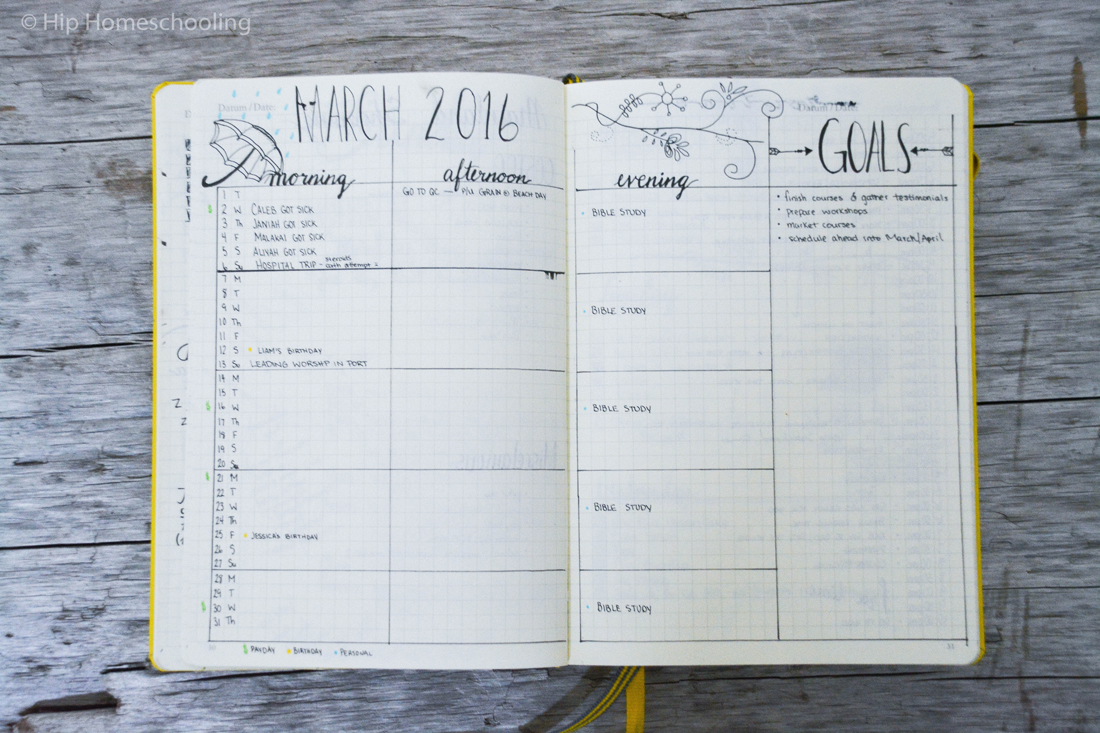 © Hip Homeschooling
Datum / Date:
MARCH 2016
morning
afternoon
1 T GO TO QC — P/U GRAIN @ BEACH DAY
2 W CALEB GOT SICK
3 Th JANIAH GOT SICK
4 F MALAKAI GOT SICK
5 S ALIYAH GOT SICK
6 Su HOSPITAL TRIP - steroids
7 M
8 T
9 W
10 Th
11 F
12 S LIAM'S BIRTHDAY
13 Su LEADING WORSHIP IN PORT
14 M
15 T
16 W
17 Th
18 F
19 S
20 Su
21 M
22 T
23 W
24 Th
25 F JESSICA'S BIRTHDAY
26 S
27 Su
28 M
29 T
30 W
31 Th
$ PAYDAY BIRTHDAY PERSONAL
Datum / Date:
evening
BIBLE STUDY
BIBLE STUDY
BIBLE STUDY
BIBLE STUDY
BIBLE STUDY
GOALS
• finish courses & gather testimonials
• prepare workshops
• market courses
• schedule ahead into March/April
31